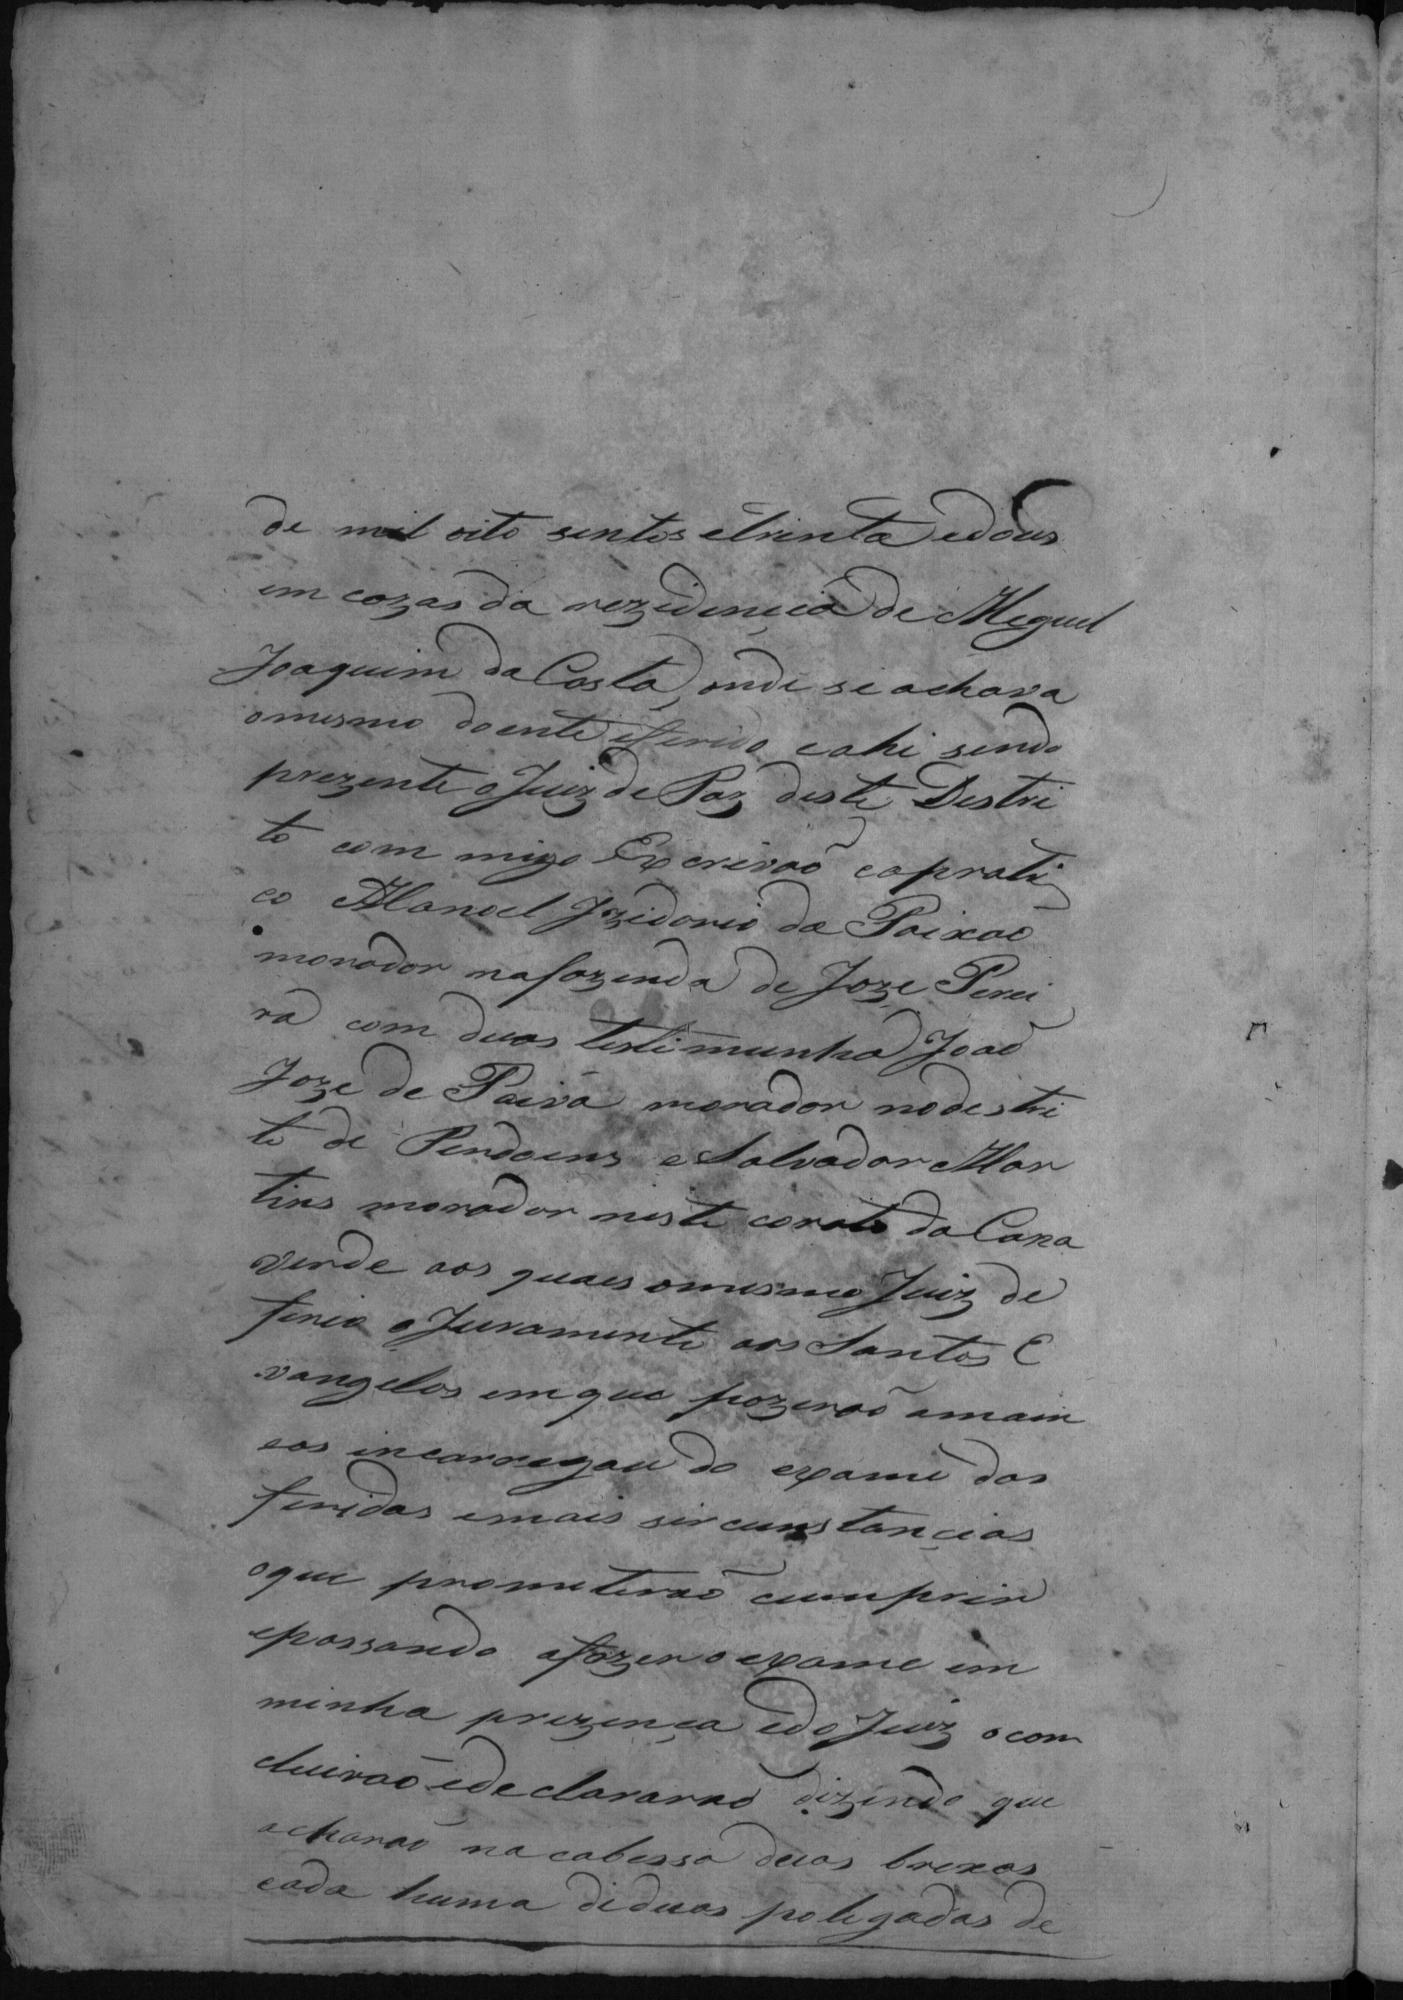 de mil oito sentos etrinta edous
em cazas da rezidençia de Meguel
Joaquim da Costa, onde se achava
omesmo doente eferido eahi sendo
prezente o Juiz de Paz deste Destri
to com migo Excrivaõ eaprati
co Manoel Izidorio da Paixaõ
morador nafazenda de Joze Perei
ra com duas testimunha Joaõ
Joze de Paiva morador nodestri
to de Perdoens e Salvador Mar
tins morador neste corato da Cana
verde aos quaes omesmo Juiz de
ferio o Juramento aos Santos E
vangelos em que pozeraõ amam
eos incarregou do exame das
feridas emais sircunstançias
oque prometeraõ cumprir
epassando afazer o exame em
minha prezença edo Juiz ocom
cluiraõ edeclararaõ dizendo que
acharaõ na cabessa duas brexas
cada huma deduas polegadas de